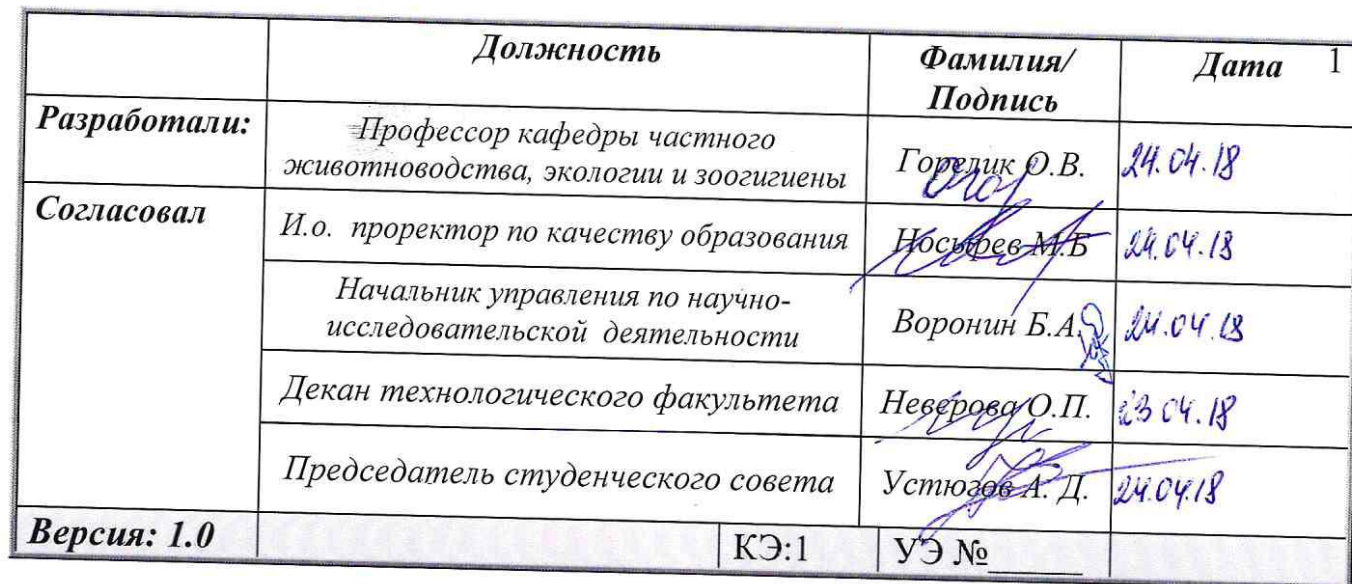 Должность Фамилия/ Дата 1
Подпись
Разработали: Профессор кафедры частного
животноводства, экологии и зоогигиены Горелик О.В. 24.04.18
Согласовал И.о. проректор по качеству образования Носырев М.Б 24.04.18
Начальник управления по научно-
исследовательской деятельности Воронин Б.А. 24.04.18
Декан технологического факультета Неверова О.П. 23 04.18
Председатель студенческого совета Устюгов А. Д. 24.04.18
Версия: 1.0 КЭ:1 УЭ №_____